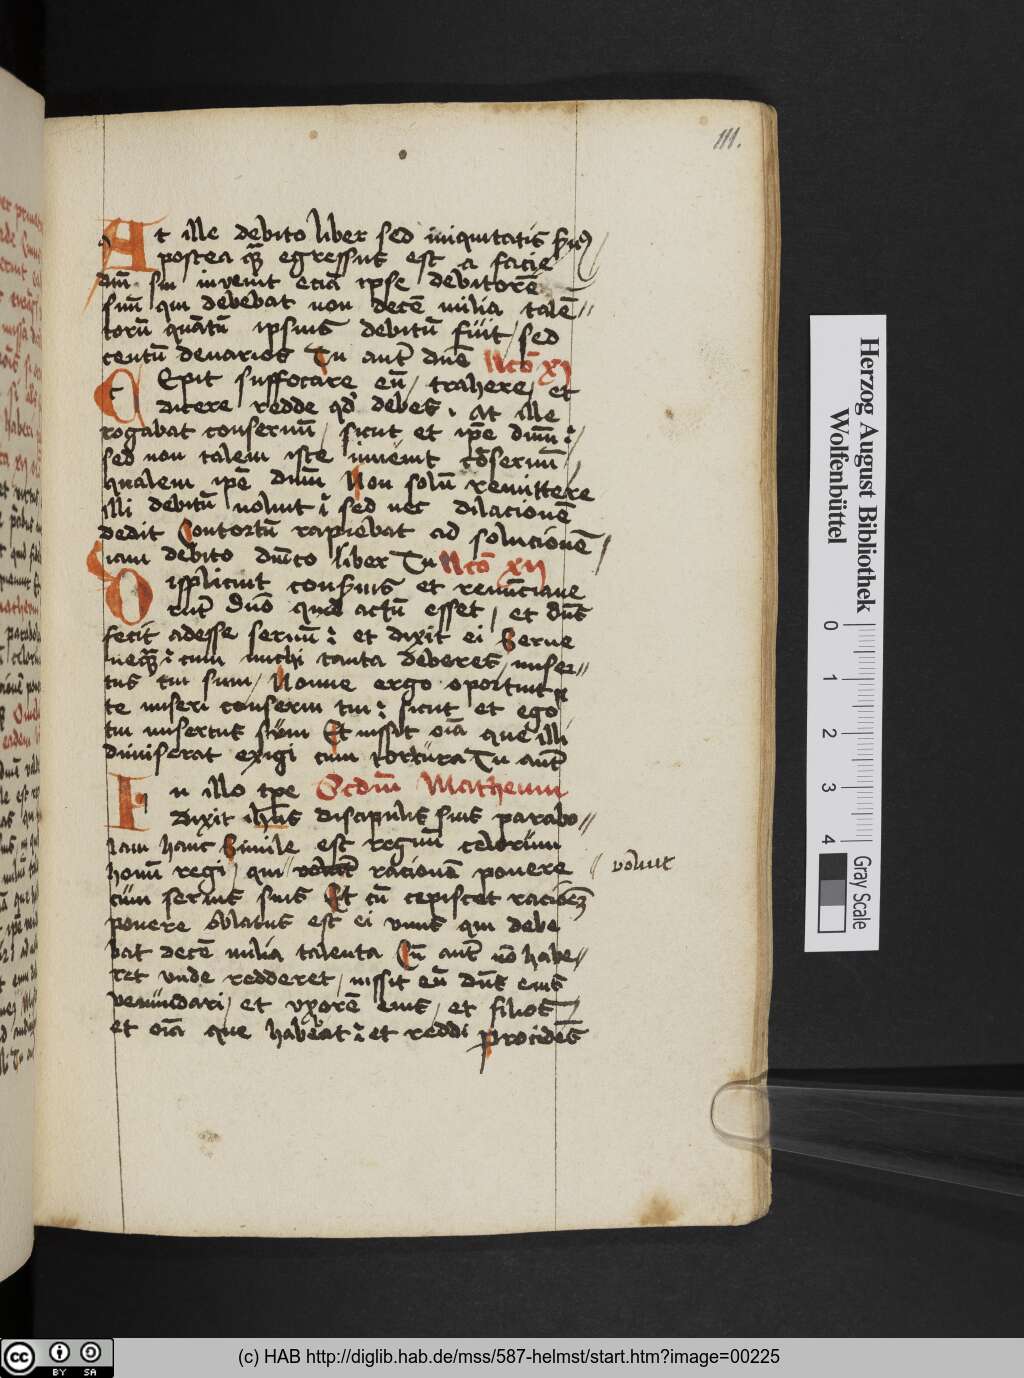 111.
At ille debito liber sed iniquitatis
postea q̄ egressus est a facie
dn̄i sui inuenit eciā ipse debitorē
suū qui debebat non decē milia talē
torū quātū ipsius debitū fuit / sed
centū denarios Tu aut̄ dn̄e Lc̄o xj
Cepit suffocare eū / trahere / et
dicere redde qd̓ debes . At ille
rogabat conseruū / sicut et ip̄e dn̄m
sed non talem iste inuenit cōseruū /
qualem ip̄e dn̄m Non solū remittere
illi debitū noluit sed nec dilacionē
dedit Contortū rapiebat ad solucionē /
iam debito dn̄ico liber Tu Lc̄o xij
Displicuit conseruis et renūciaue
rūt dn̄o quod actū esset / et dn̄s
fecit adesse seruū et dixit ei Serue
neq̄ cum michi tanta deberes / miser
tus tui sum / Nonne ergo oportuit
te miseri conserui tui sicut et ego
tui misertus sum Et iussit oīa que illi
dimiserat exigi cum tortura Tu aut̄
In illo tp̄e Scd̄m Matheum
Dixit ih̄us discipulis suis parabo
lam hanc Simile est regnū celorum
homī regi / qui voluit racionē ponere
voluit
cum seruis suis Et cū cepisset racōem
ponere oblatus est ei vnus qui debe
bat decē milia talenta Cū aut̄ nō habe
ret vnde redderet / iussit eū dn̄s eius
venundari / et vxorē eius / et filios
et oīa que habebat et reddi procidēs
Herzog August Bibliothek
Wolfenbüttel
0 1 2 3 4
Gray Scale
cc BY SA
(c) HAB http://diglib.hab.de/mss/587-helmst/start.htm?image=00225